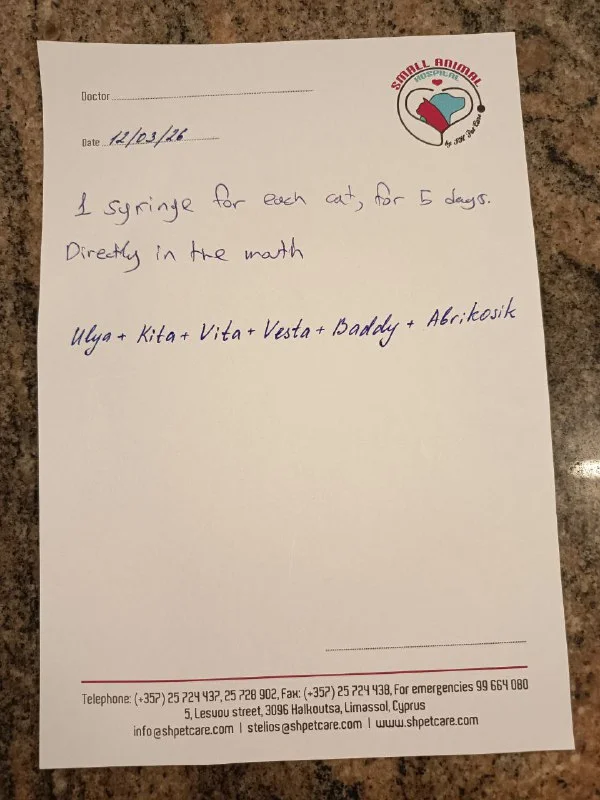 SMALL ANIMAL
HOSPITAL
by SH Pet Care
Doctor
Date 12/03/26
1 syringe for each cat, for 5 days.
Directly in the mouth
Ulya + Kita + Vita + Vesta + Baddy + Abrikosik
Telephone: (+357) 25 724 437, 25 728 902, Fax: (+357) 25 724 438, For emergencies 99 664 080
5, Lesvou street, 3096 Halkoutsa, Limassol, Cyprus
info@shpetcare.com | stelios@shpetcare.com | www.shpetcare.com